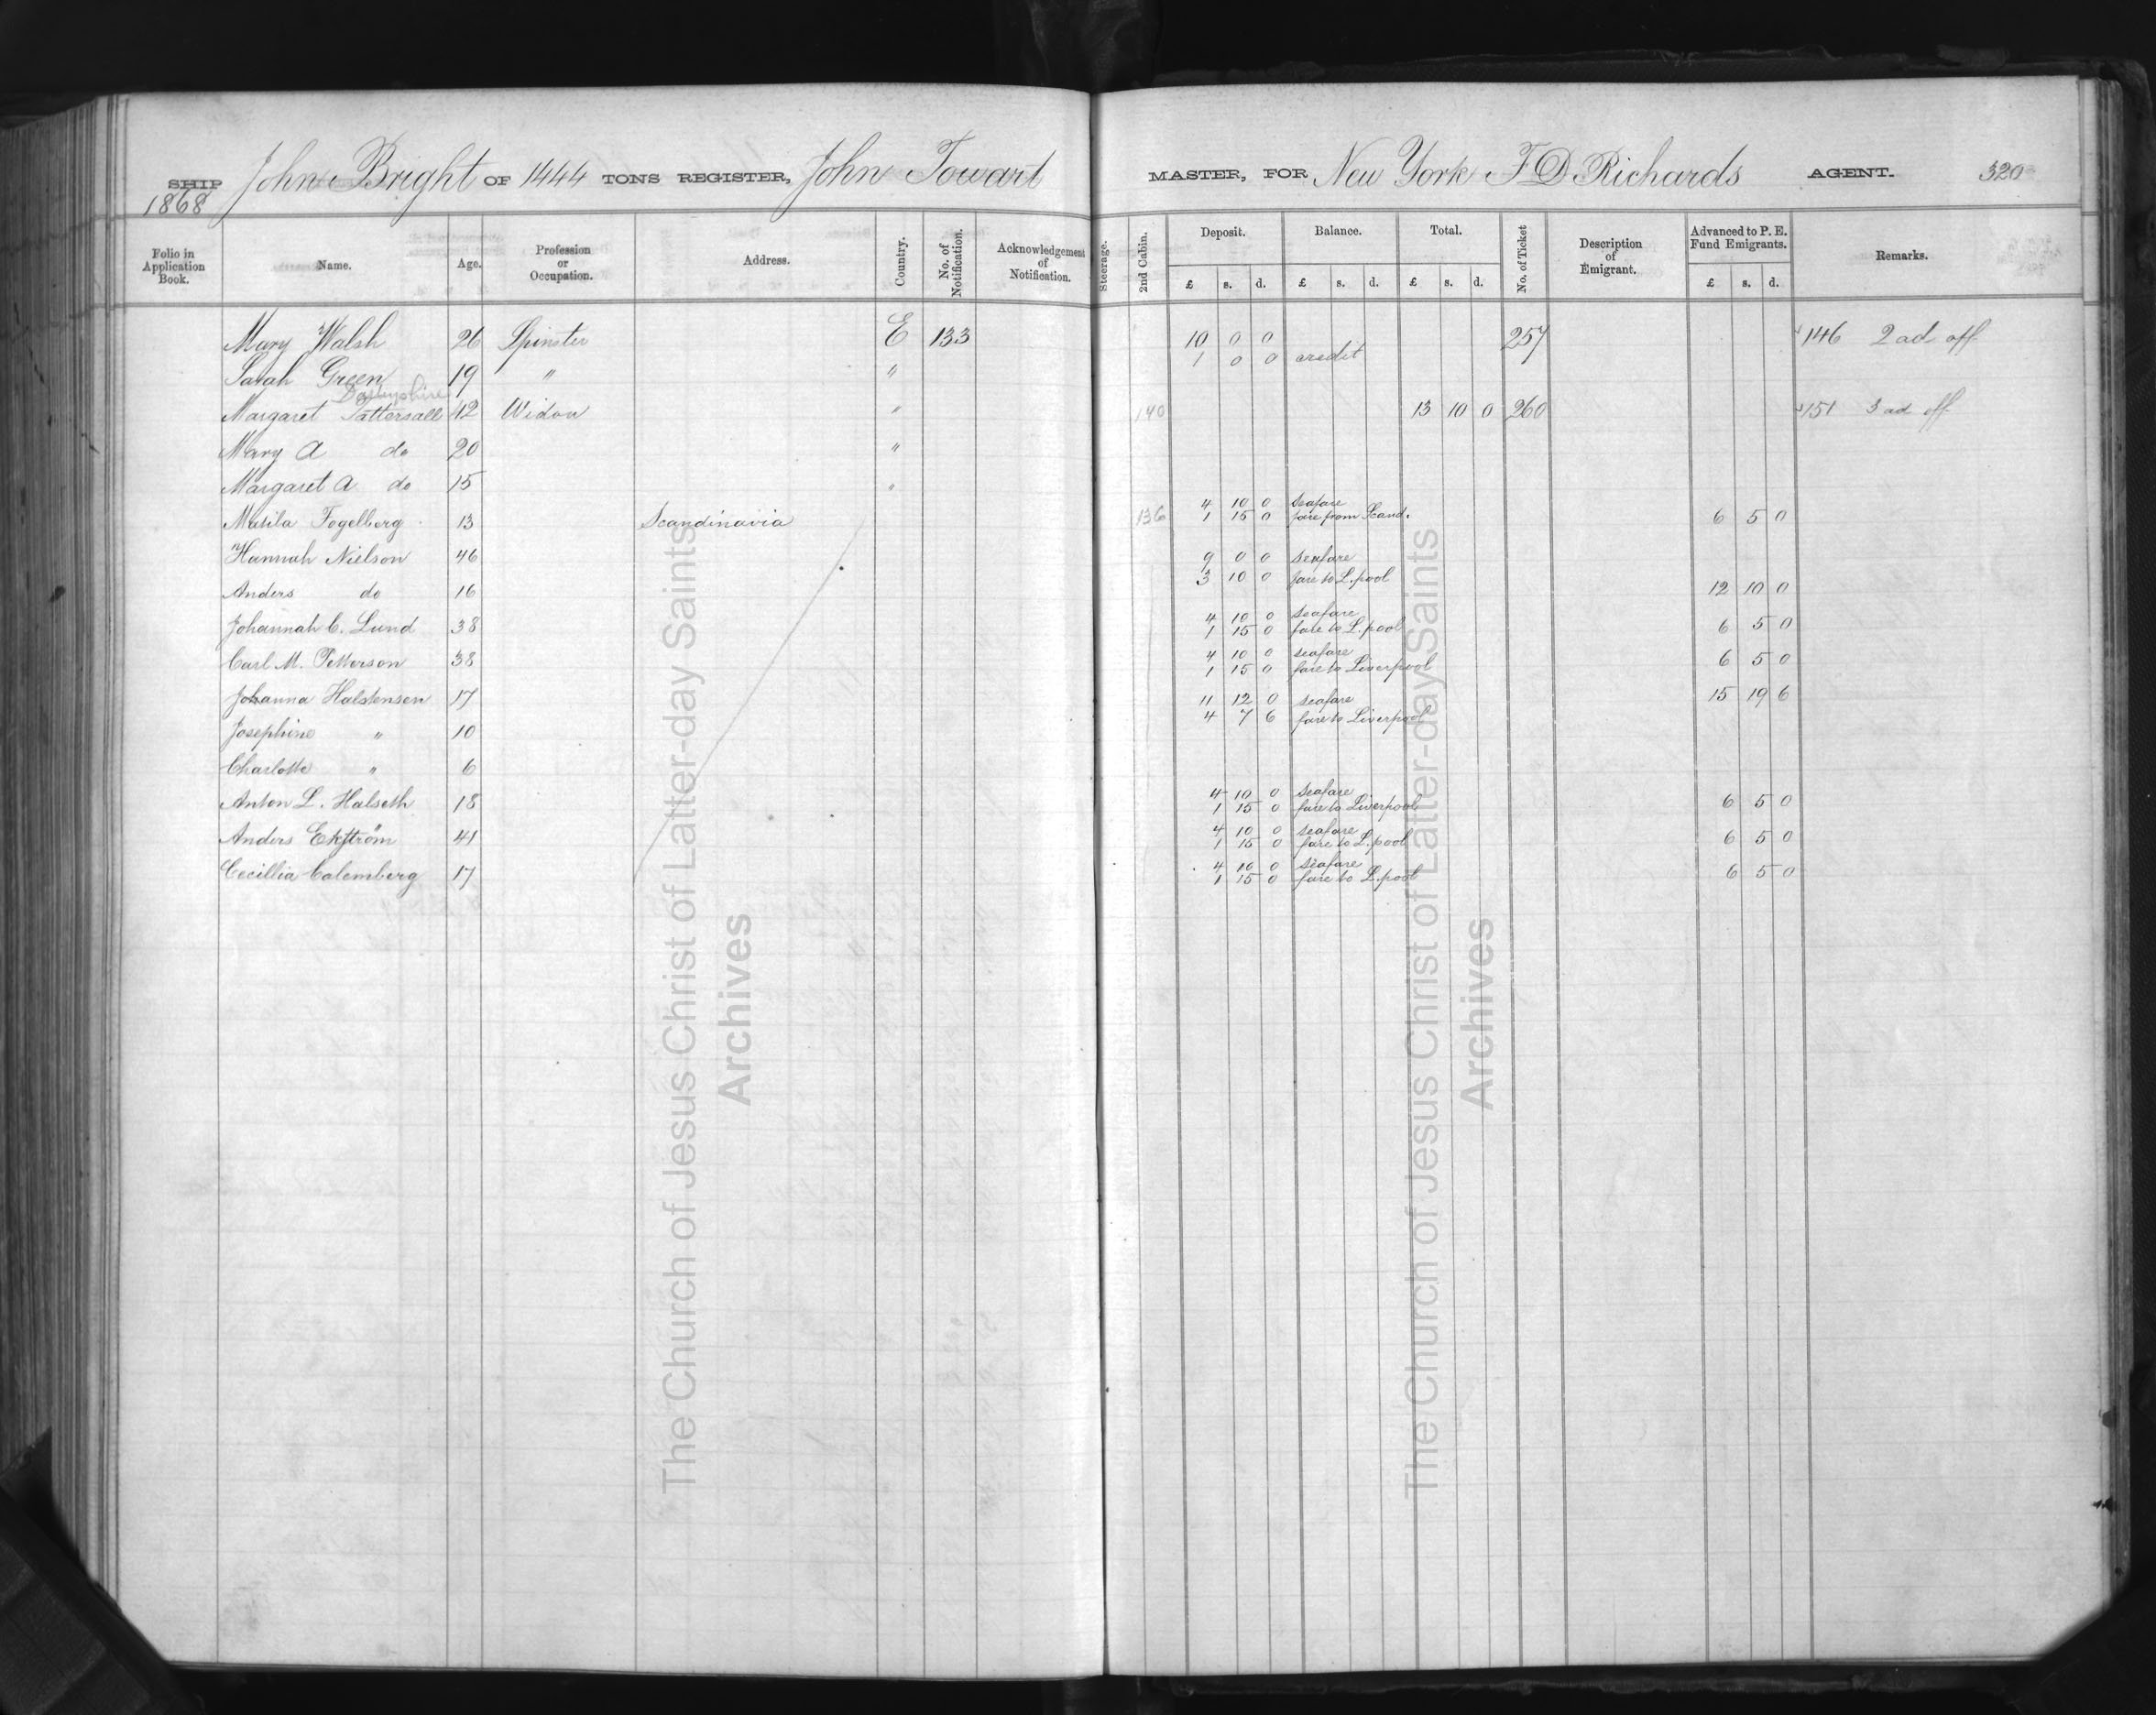 SHIP John Bright OF 1444 TONS REGISTER, John Towart MASTER, FOR New York F D Richards AGENT. 320
1868
Folio in Application Book. Name. Age. Profession or Occupation. Address. Country. No. of Notification. Acknowledgement of Notification. Steerage. 2nd Cabin. Deposit. £ s. d. Balance. £ s. d. Total. £ s. d. No. of Ticket Description of Emigrant. Advanced to P. E. Fund Emigrants. £ s. d. Remarks.
Mary Walsh 26 Spinster E 133 10 0 0 257 146 2 ad off
1 0 0 credit
Sarah Green 19 " "
Derbyshire
Margaret Tattersall 42 Widow " 140 13 10 0 260 151 3 ad off
Mary A do 20 "
Margaret A. do 15 "
4 10 0 Seafare
Matila Fogelberg 13 Scandinavia 136 1 15 0 fare from Scand. 6 5 0
Hannah Nielson 46 9 0 0 Seafare
3 10 0 fare to L.pool
Anders do 16 12 10 0
4 10 0 Seafare
Johannah C. Lund 38 1 15 0 fare to L.pool 6 5 0
4 10 0 seafare
Carl M. Petterson 38 1 15 0 fare to Liverpool 6 5 0
Johanna Halstensen 17 11 12 0 seafare 15 19 6
4 7 6 fare to Liverpool
Josephine " 10
Charlotte " 6
4 10 0 Seafare
Anton L. Halseth 18 1 15 0 fare to Liverpool 6 5 0
4 10 0 seafare
Anders Ekström 41 1 15 0 fare to L.pool 6 5 0
4 10 0 Seafare
Cecillia Calemberg 17 1 15 0 fare to L.pool 6 5 0
The Church of Jesus Christ of Latter-day Saints
Archives
The Church of Jesus Christ of Latter-day Saints
Archives